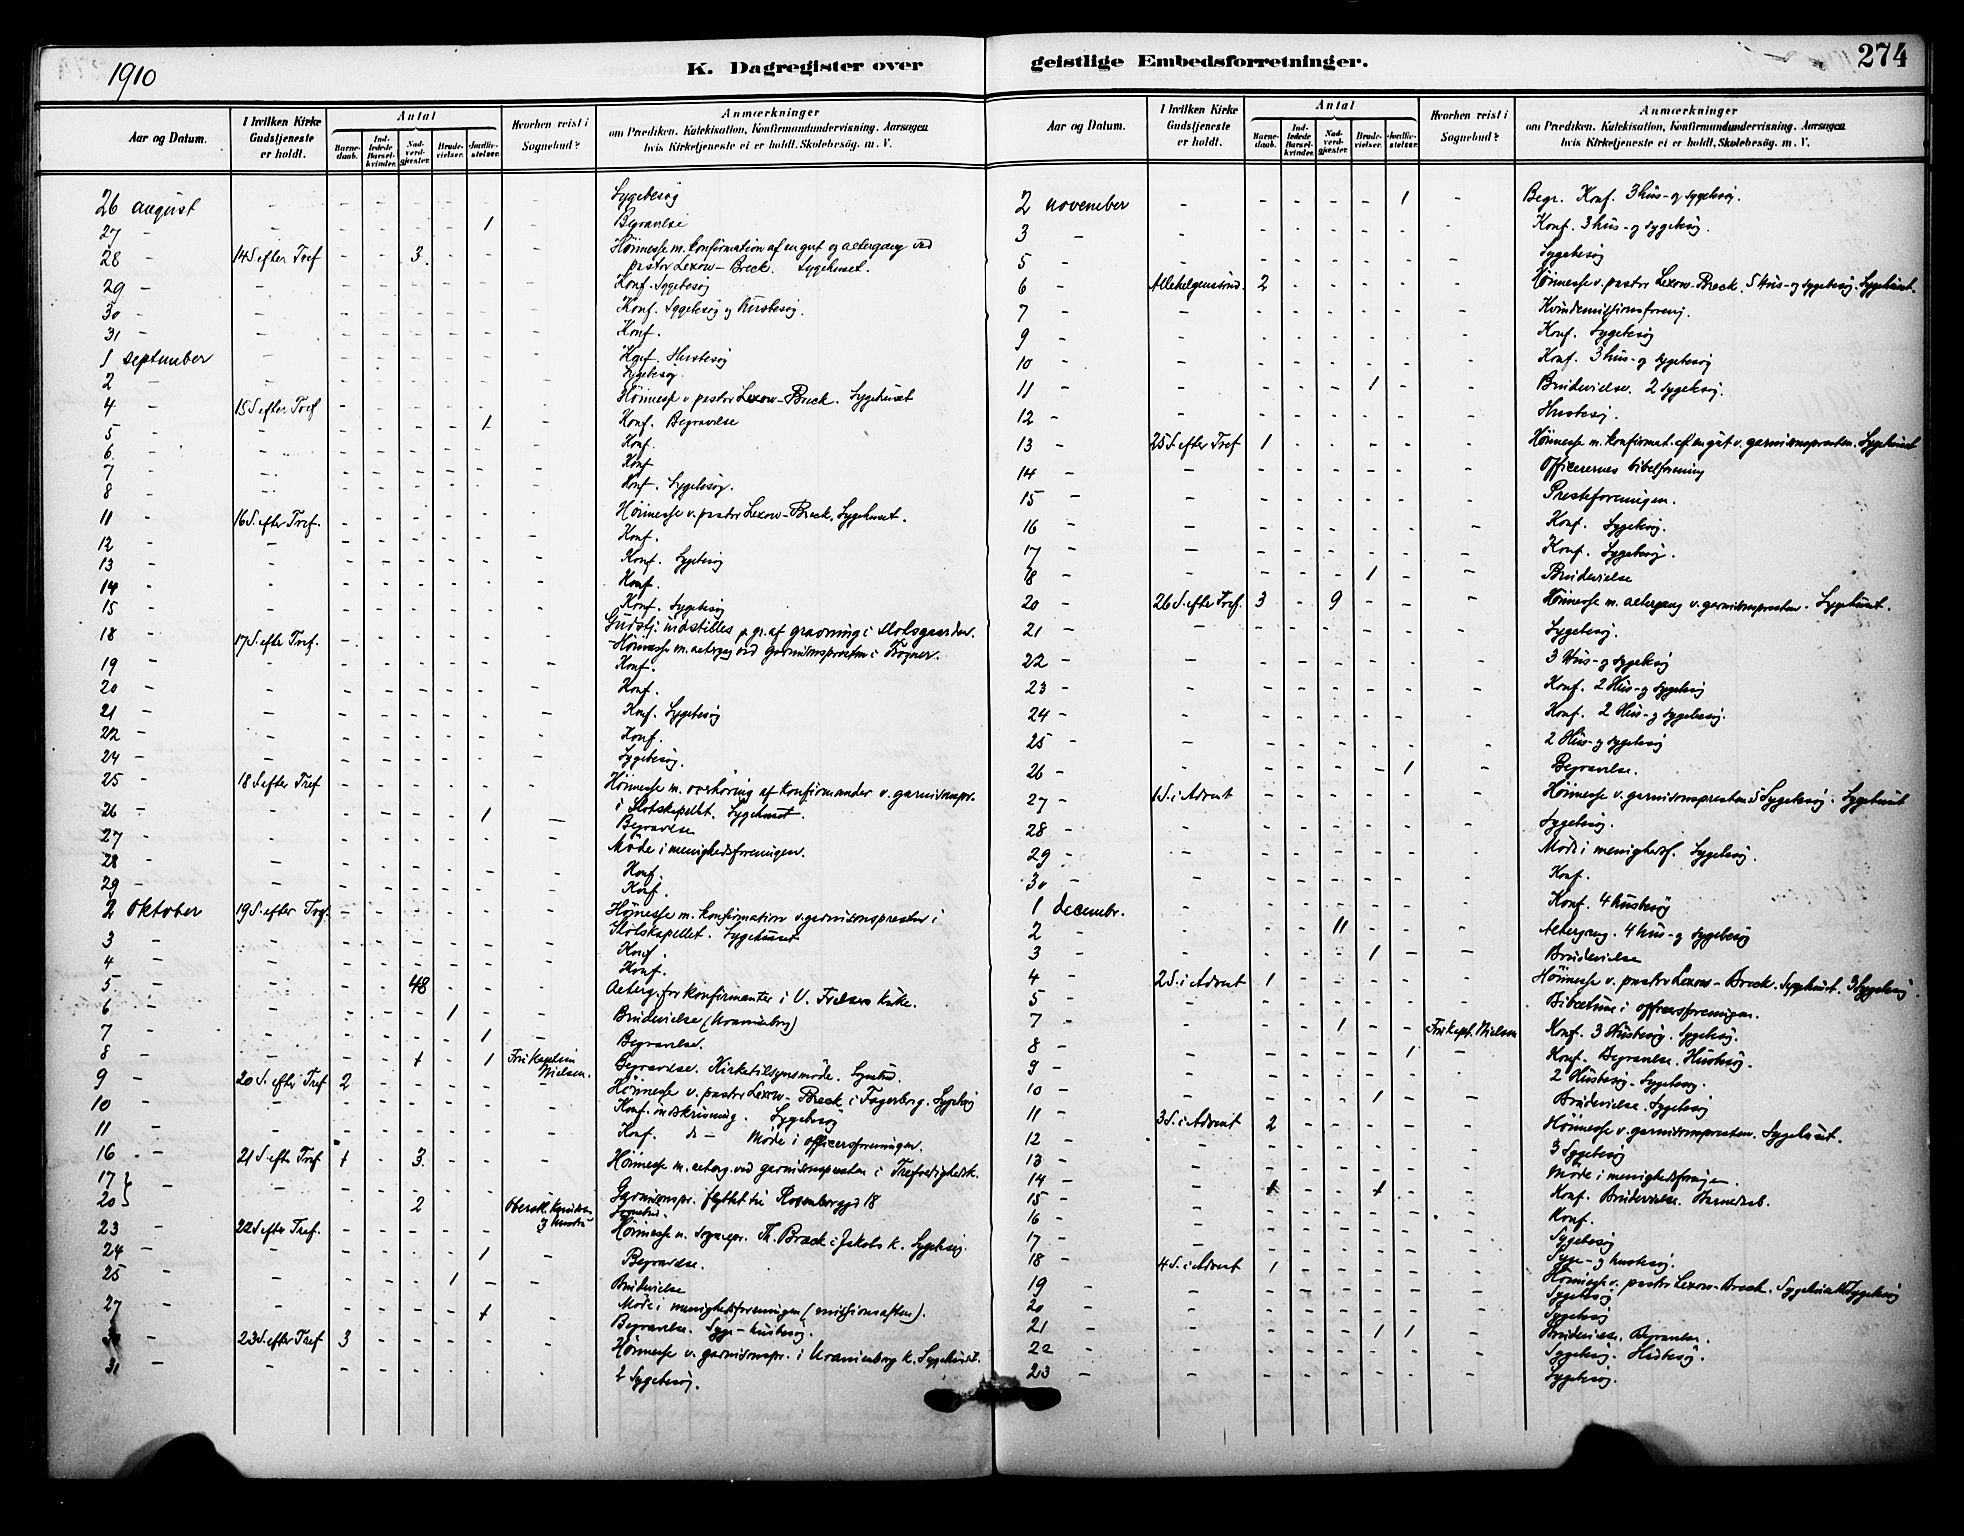 1910
K. Dagregister over geistlige Embedsforretninger.
274
Aar og Datum.
I hvilken Kirke Gudstjeneste er holdt.
Antal
Barne-daab.
Ind-ledede Barsel-kvinder.
Nad-verd-gjæster.
Brude-vielser.
Jordfæ-stelser.
Hvorhen reist i Sognebud?
Anmærkninger
om Prædiken, Katekisation, Konfirmandundervisning, Aarsagen
hvis Kirketjeneste ei er holdt, Skolebesög. m. V.
26 august - - - - - - - Sygebesög
27 - - - - - - 1 - Begravelse
28 - 14 S. efter Tref - - 3 - - - Höimesse m. konfirmation af en gut og altergang ved
pastor Lexow-Breck. Sygehuset.
29 - Konf. Sygebesög
30 - Konf. Sygebesög og husbesög.
31 - Konf.
1 september - Konf. Husbesög
2 - Sygebesög.
4 - 15 S. efter Tref - Höimesse v. pastor Lexow-Breck. Sygehuset
5 - 1 - Konf. Begravelse
6 - Konf.
7 - Konf
8 - Konf. Sygebesög.
11 - 16 S. efter Tref. - Höimesse v. pastor Lexow-Breck. Sygehuset.
12 - Konf.
13 - Konf. Sygebesög
14 - Konf.
15 - Konf. Sygebesög
18 - 17 S. efter Tref. - Gudstj. indstilles p. gr. af gravning i Slotsgaarden.
Höimesse m. altergang ved garnisonspresten i Frogner.
19 - Konf.
20 - Konf.
21 - Konf. Sygebesög
22 - Konf.
24 - Sygebesög.
25 - 18 S. efter Tref - Höimesse m. overhöring af konfirmander v. garnisonspr.
i Slotskapellet. Sygehuset.
26 - 1 - Begravelse
27 - Möde i menighedsforeningen.
28 - Konf.
29 - Konf.
2 oktober 19 S. efter Tref. - Höimesse m. konfirmation v. garnisonspresten i
Slotskapellet. Sygehuset
3 - Konf.
4 - Konf.
5 - 48 - Alterg. for konfirmanter i V. Frelsers kirke.
6 - 1 - Brudevielse (Uranienborg)
7 - 1 - Begravelse.
8 - 1 - 1 Fru kaptein Nielsen. Begravelse. Kirketilsynsmöde. Sognebud.
9 - 20 S. efter Tref 2 - Höimesse v. pastor Lexow-Breck i Fagerborg. Sygebesög
10 - Konf. indskrivning. Sygebesög
11 - Konf. do - Möde i officersforeningen.
16 - 21 S. efter Tref 1 - 3 - Höimesse m. alterg. ved garnisonspresten i Trefoldighedsk.
17 } - Garnisonspr. flyttet til Rosenborggd 18
20 } 2 - Sognebud.
23 - 22 S. efter Tref. - Höimesse v. sognepr. Th. Breck i Jakobs k. Sygebesög.
24 - 1 - Begravelse.
25 - 1 - Brudevielse
Möde i menighedsforeningen (missionsaften).
27 - 1 - Begravelse. Syge- husbesög.
30 - 23 S. efter Tref 3 - Höimesse v. garnisonspr. i Uranienborg k. Sygehuset.
31 - 2 Sygebesög.
Aar og Datum.
I hvilken Kirke Gudstjeneste er holdt.
Antal
Barne-daab.
Ind-ledede Barsel-kvinder.
Nad-verd-gjæster.
Brude-vielser.
Jordfæ-stelser.
Hvorhen reist i Sognebud?
Anmærkninger
om Prædiken, Katekisation, Konfirmandundervisning, Aarsagen
hvis Kirketjeneste ei er holdt, Skolebesög. m. V.
2 november - 1 - Begr. Konf. 3 hus- og sygebesög.
3 - Konf. 3 hus- og sygebesög.
5 - Sygebesög
6 Allehelgenssönd. 2 - Höimesse v. pastor Lexow-Breck. 5 Hus- og sygebesög. Sygehuset.
7 - Kvindemissionsforenig.
9 - Konf. Sygebesög
10 - Konf. 3 hus- og sygebesög
11 - 1 - Brudevielse. 2 sygebesög.
12 - Husbesög.
13 - 25 S. efter Tref 1 - Höimesse m. konfirmat. af en gut v. garnisonspresten. Sygehuset
14 - Officerernes bibelforening
15 - Presteforeningen.
16 - Konf. Sygebesög.
17 - Konf. Sygebesög.
18 - 1 - Brudevielse
20 - 26 S. efter Tref. 3 - 9 - Höimesse m. altergang v. garnisonspresten. Sygehuset.
21 - Sygebesög.
22 - 3 Hus- og sygebesög
23 - Konf. 2 Hus- og sygebesög
24 - Konf. 2 Hus- og sygebesög.
25 - 2 Hus- og sygebesög
26 - 1 - Begravelse.
27 - 1 S. i Advent - Höimesse v. garnisonspresten. 5 Sygebesög. Sygehuset
28 - Sygebesög.
29 - Möde i menighedsf. Sygebesög.
30 - Konf.
1 decembr. - Konf. 4 husbesög
2 - 11 - Altergang. 4 hus- og sygebesög
3 - 1 - Brudevielse
4 - 2 S. i Advent 1 - Höimesse v. pastor Lexow-Breck. Sygehuset. 3 Sygebesög.
5 - Bibeltime i officersforeningen.
7 - 1 - Fru kapt. Nielsen Konf. 3 Husbesög. Sygebesög.
8 - 1 - Konf. Begravelse. Husbesög.
9 - 2 Husbesög. Sygebesög.
10 - 1 - Brudevielse. Sygebesög
11 - 3 S. i Advent 2 - Höimesse v. garnisonspresten. Sygehuset.
12 - 3 Sygebesög
13 - Möde i menighedsforenigen.
14 - 1 - 1 - Konf. Brudevielse. Barnedaab.
15 - Konf.
16 - Sygebesög
17 - Syge- og husbesög.
18 - 4 S. i Advent 1 - Höimesse v. pastor Lexow-Breck. Sygehuset. Sygebesög
19 - Sygebesög.
20 - Sygebesög
21 - 1 1 - Brudevielse. Begravelse.
22 - Sygebesög. Husbesög.
23 - Sygebesög.